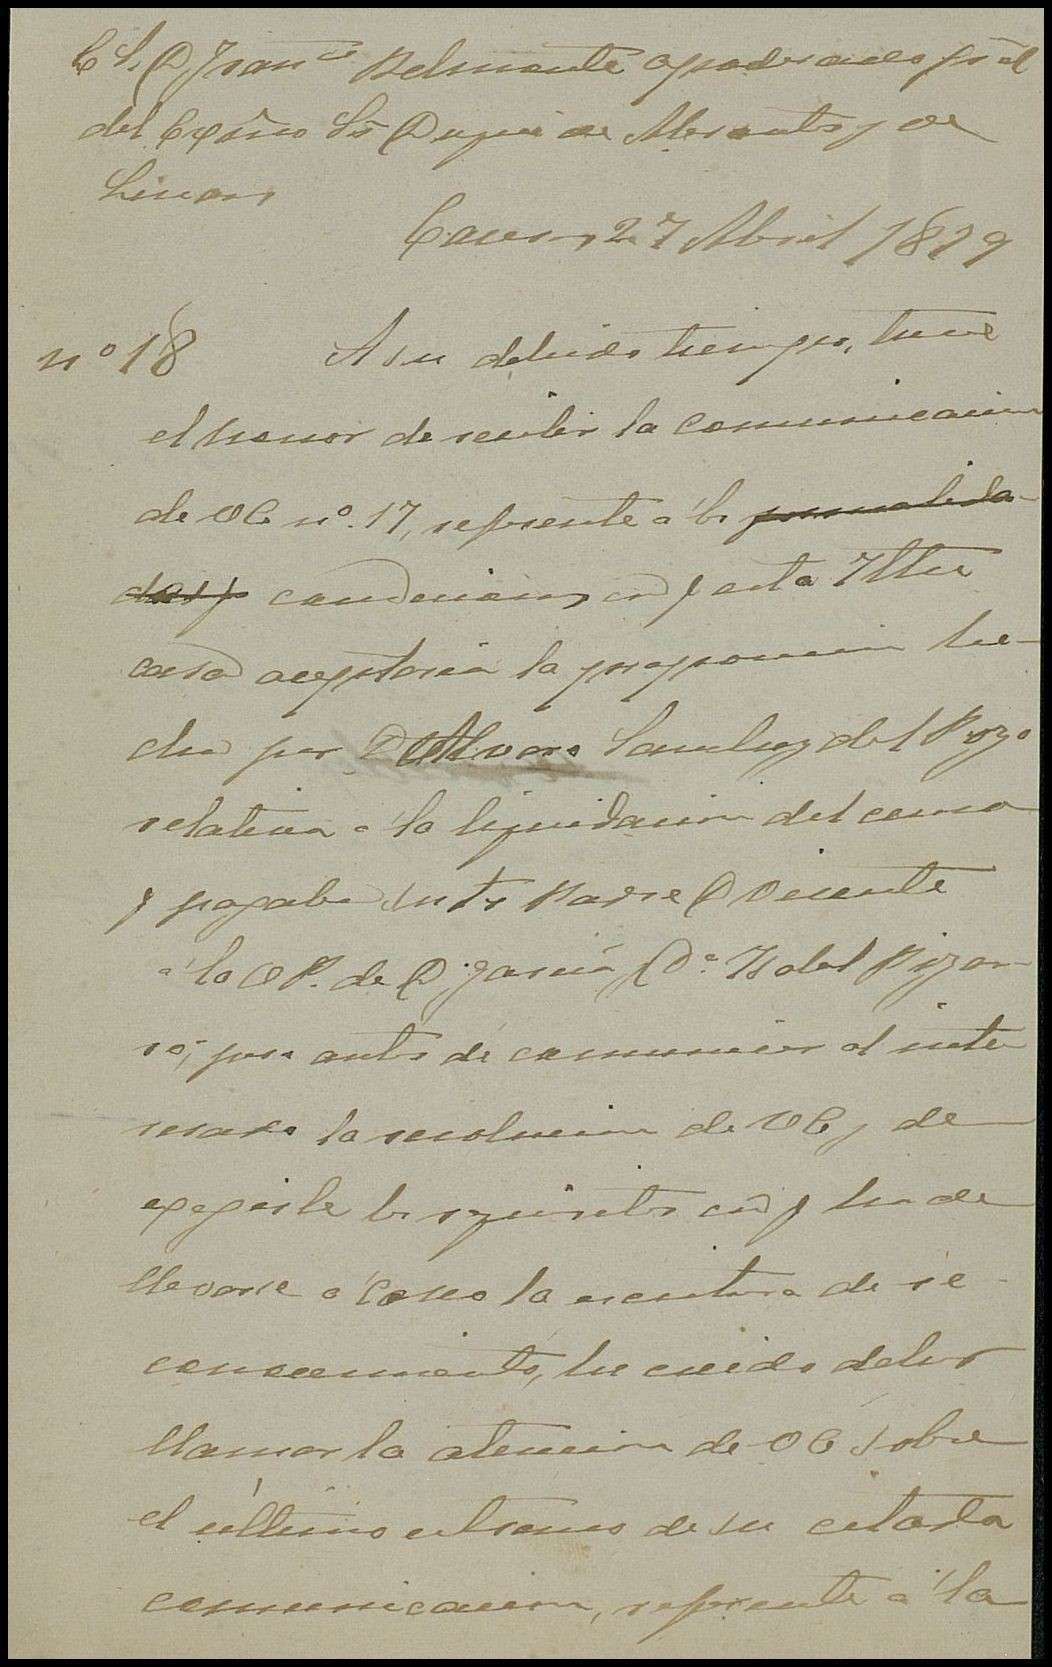 E. S. D. Franco Belmonte apoderado gral
del Excmo Sr Duque de Abrantes y de
Linares
Caceres 27 Abril 1879
nº 18 A su debido tiempo, tuve
el honor de recibir la comunicacion
de VE nº. 17, referente á las formalida-
des y condiciones con q esta Iltre
casa aceptaria la proposicion he-
cha por D Alvaro Sanchez del Pozo
relativa á la liquidacion del censo
q pagaba su Padre D Vicente
á la O P. de D. Garcia y Dª. Isabel Pizar-
ro; pero antes de comunicar al inte
resado la resolucion de VE y de
exigirle los requisitos con q ha de
llevarse á cabo la escritura de re-
conocimiento, he creido deber
llamar la atencion de VE sobre
el último estremo de su citada
comunicacion, referente á la